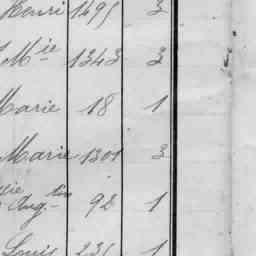 Henri 1495 3
Mie 1343 3
Marie 18 1
Marie 1301 3
Aug.tin 92 1
Louis 236 1